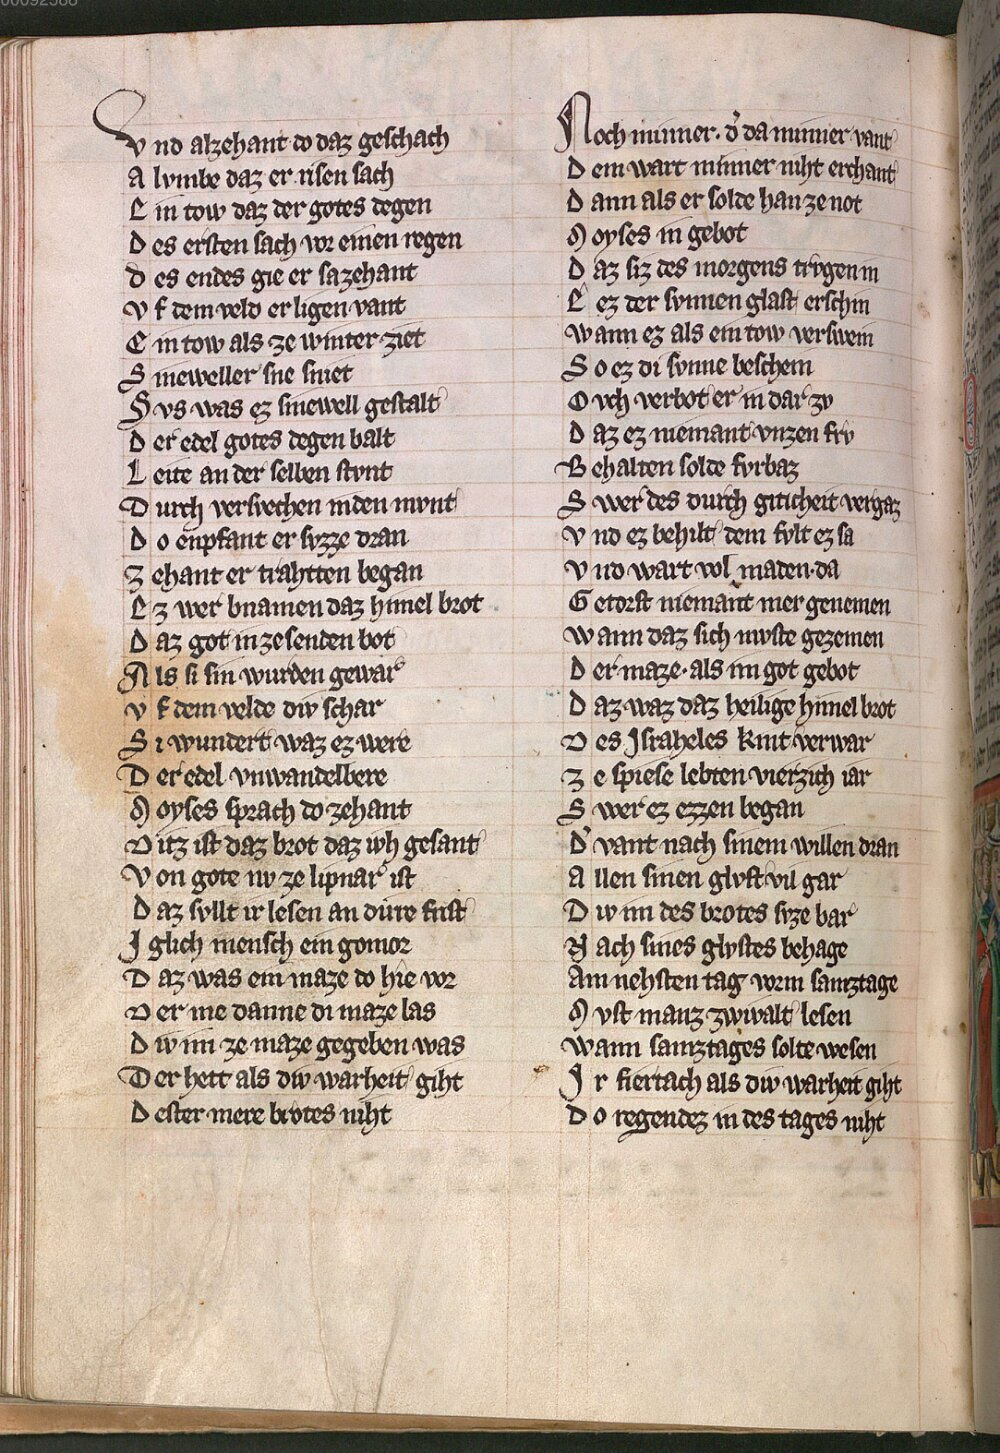 00092588
Vnd alzehant do daz geschach
Alvmbe daz er risen sach
Ein tow daz der gotes degen
Des ersten sach vor einen regen
des endes gie er sazehant
Vf dem veld er ligen vant
Ein tow als ze winter ziet
Sineweller sne sniet
Svs was ez sinewell gestalt
Der edel gotes degen balt
Leite an der selben stvnt
Durch versvechen in den mvnt
Do enpfant er svzze dran
Zehant er trahtten began
Ez wer bnamen daz himel brot
Daz got in ze senden bot
Als si sin wurden gewar
Vf dem velde div schar
Si wundert waz ez were
Der edel vnwandelbere
Moyses sprach do zehant
Ditz ist daz brot daz ivh gesant
Von gote nv ze lipnar ist
Daz svllt ir lesen an dirre frist
Iglich mensch ein gomor
Daz was ein maze do hie vor
Der me danne di maze las
Div im ze maze gegeben was
Der hett als div warheit giht
Dester mere brotes niht
Noch minner. d' da minner vant
Dem wart minner niht erchant
Dann als er solde han ze not
Moyses in gebot
Daz siz des morgens trvgen in
E ez der svnnen glast erschin
Wann ez als ein tow verswein
So ez di svnne beschein
Ovch verbot er in dar zv
Daz ez niemant vnzen frv
Behalten solde fvrbaz
Swer des durch giticheit vergaz
Vnd ez behilt dem fvlt ez sa
Vnd wart vol maden. da
Getorst niemant mer genemen
Wann daz sich mvste gezemen
Der maze. als im got gebot
Daz waz daz heilige himel brot
Des Israheles kint verwar
Ze spiese lebten vierzich iar
Swer ez ezzen began
D' vant nach sinem willen dran
Allen sinen glvst vil gar
Div im des brotes svze bar
Nach sines glvstes behage
Am nehsten tag vorm samztage
Mvst manz zwivalt lesen
Wann samztages solte wesen
Ir fiertach als div warheit giht
Do regendez in des tages niht